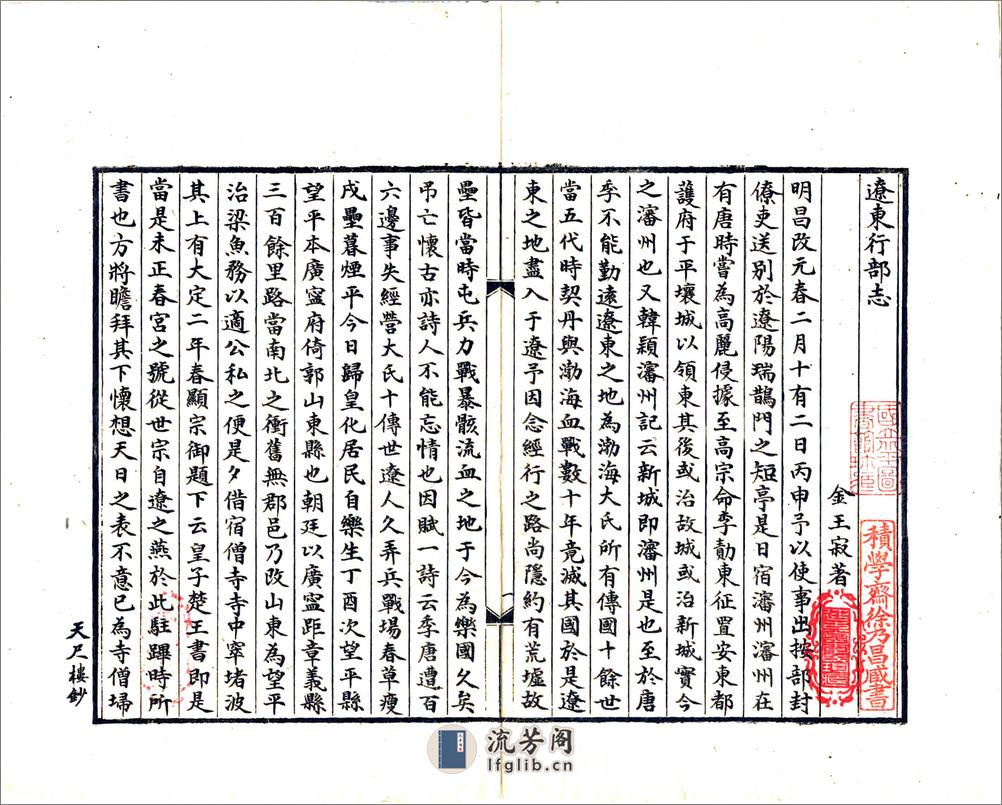 遼東行部志
金王寂著
明昌改元春二月十有二日丙申予以使事出按部封
僚吏送別於遼陽瑞鵲門之短亭是日宿瀋州瀋州在
有唐時嘗為高麗侵據至高宗命李勣東征置安東都
護府于平壤城以領東其後或治故城或治新城實今
之瀋州也又韓頴瀋州記云新城即瀋州是也至於唐
季不能勤遠遼東之地為渤海大氏所有傳國十餘世
當五代時契丹與渤海血戰數十年竟滅其國於是遼
東之地盡入于遼予因念經行之路尚隱約有荒墟故
壘皆當時屯兵力戰暴骸流血之地于今為樂國久矣
弔亡懷古亦詩人不能忘情也因賦一詩云李唐遭百
六邊事失經營大氏十傳世遼人久弄兵戰場春草瘦
戍壘暮煙平今日歸皇化居民自樂生丁酉次望平縣
望平本廣寍府倚郭山東縣也朝廷以廣寍距章義縣
三百餘里路當南北之衝舊無郡邑乃改山東為望平
治梁魚務以適公私之便是夕借宿僧寺寺中窣堵波
其上有大定二年春顯宗御題下云皇子楚王書即是
當是未正春宮之號從世宗自遼之燕於此駐蹕時所
書也方將瞻拜其下懷想天日之表不意已為寺僧埽
一
天尺樓鈔
積學齋徐乃昌藏書
流芳阁
lfglib.cn